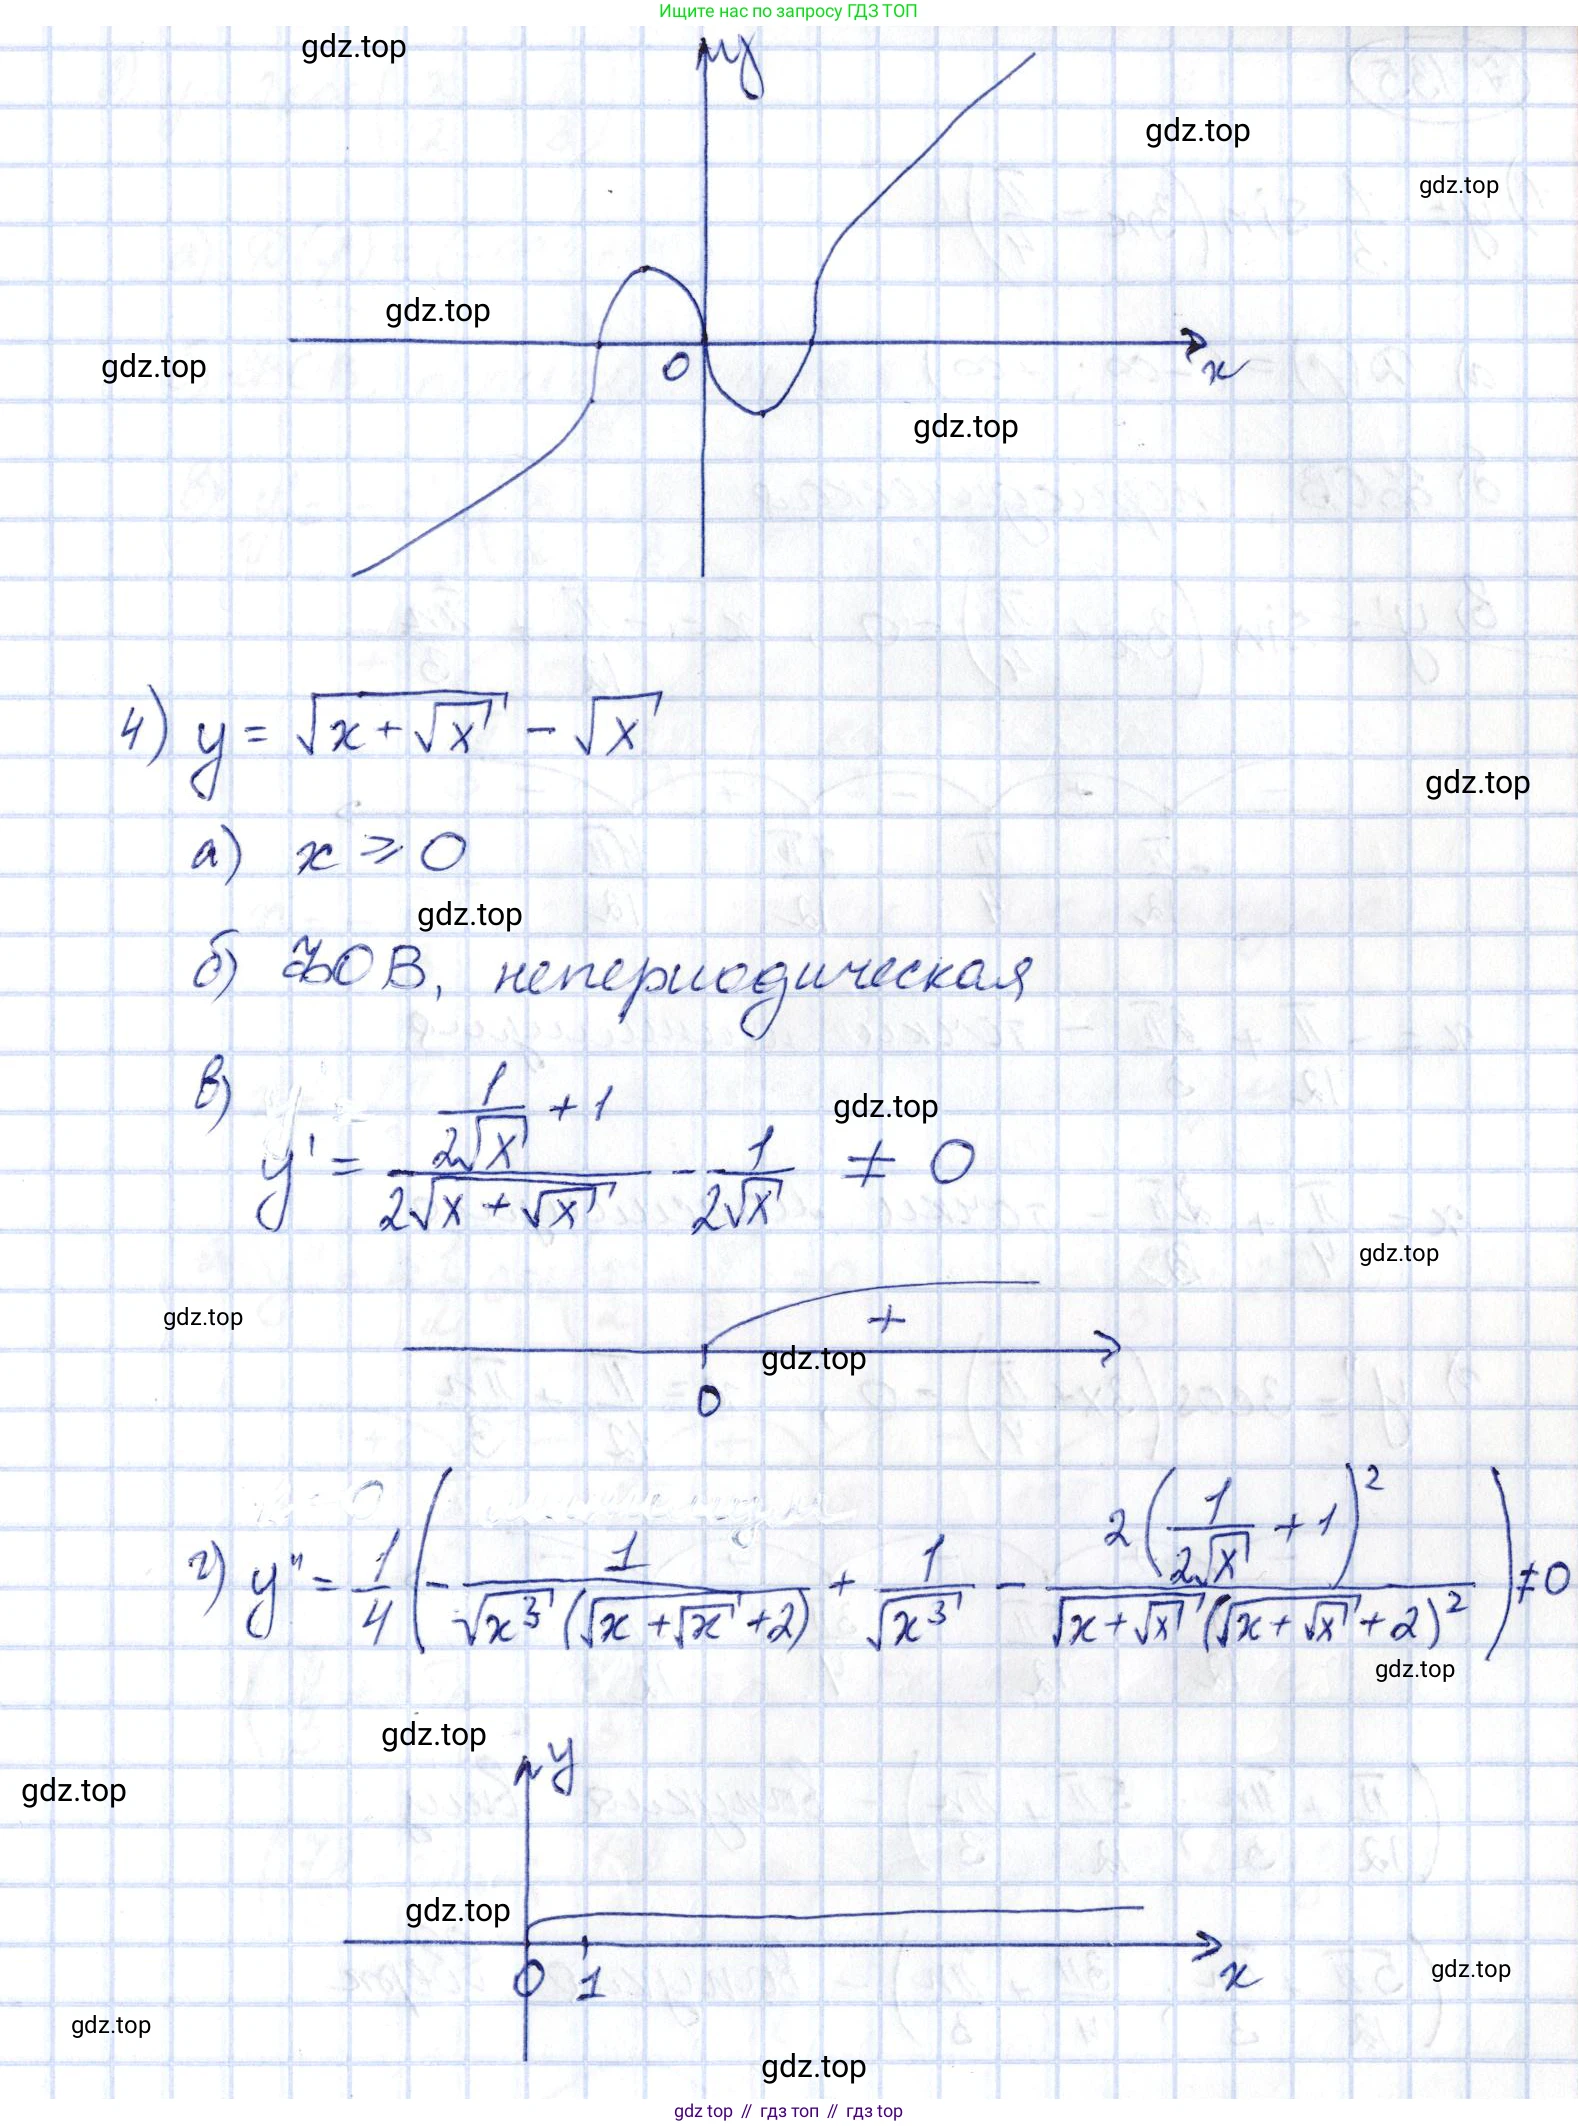 Ищите нас по запросу ГДЗ ТОП
gdz.top
y
gdz.top
gdz.top
gdz.top
gdz.top
0
x
gdz.top
4) y = √(x + √x) - √x
gdz.top
а) x ⩾ 0
gdz.top
б) ФОВ, непериодическая
в) y' = (1/(2√x) + 1)/(2√(x + √x)) - 1/(2√x) ≠ 0
gdz.top
gdz.top
gdz.top
+
gdz.top
0
г) y'' = 1/4 (- 1/(√x³ (√(x + √x) + 2)) + 1/√x³ - 2(1/(2√x) + 1)²/(√(x + √x) (√(x + √x) + 2)²)) ≠ 0
gdz.top
gdz.top
y
gdz.top
gdz.top
0 1 x
gdz.top
gdz.top
gdz.top
gdz top // гдз топ // гдз top